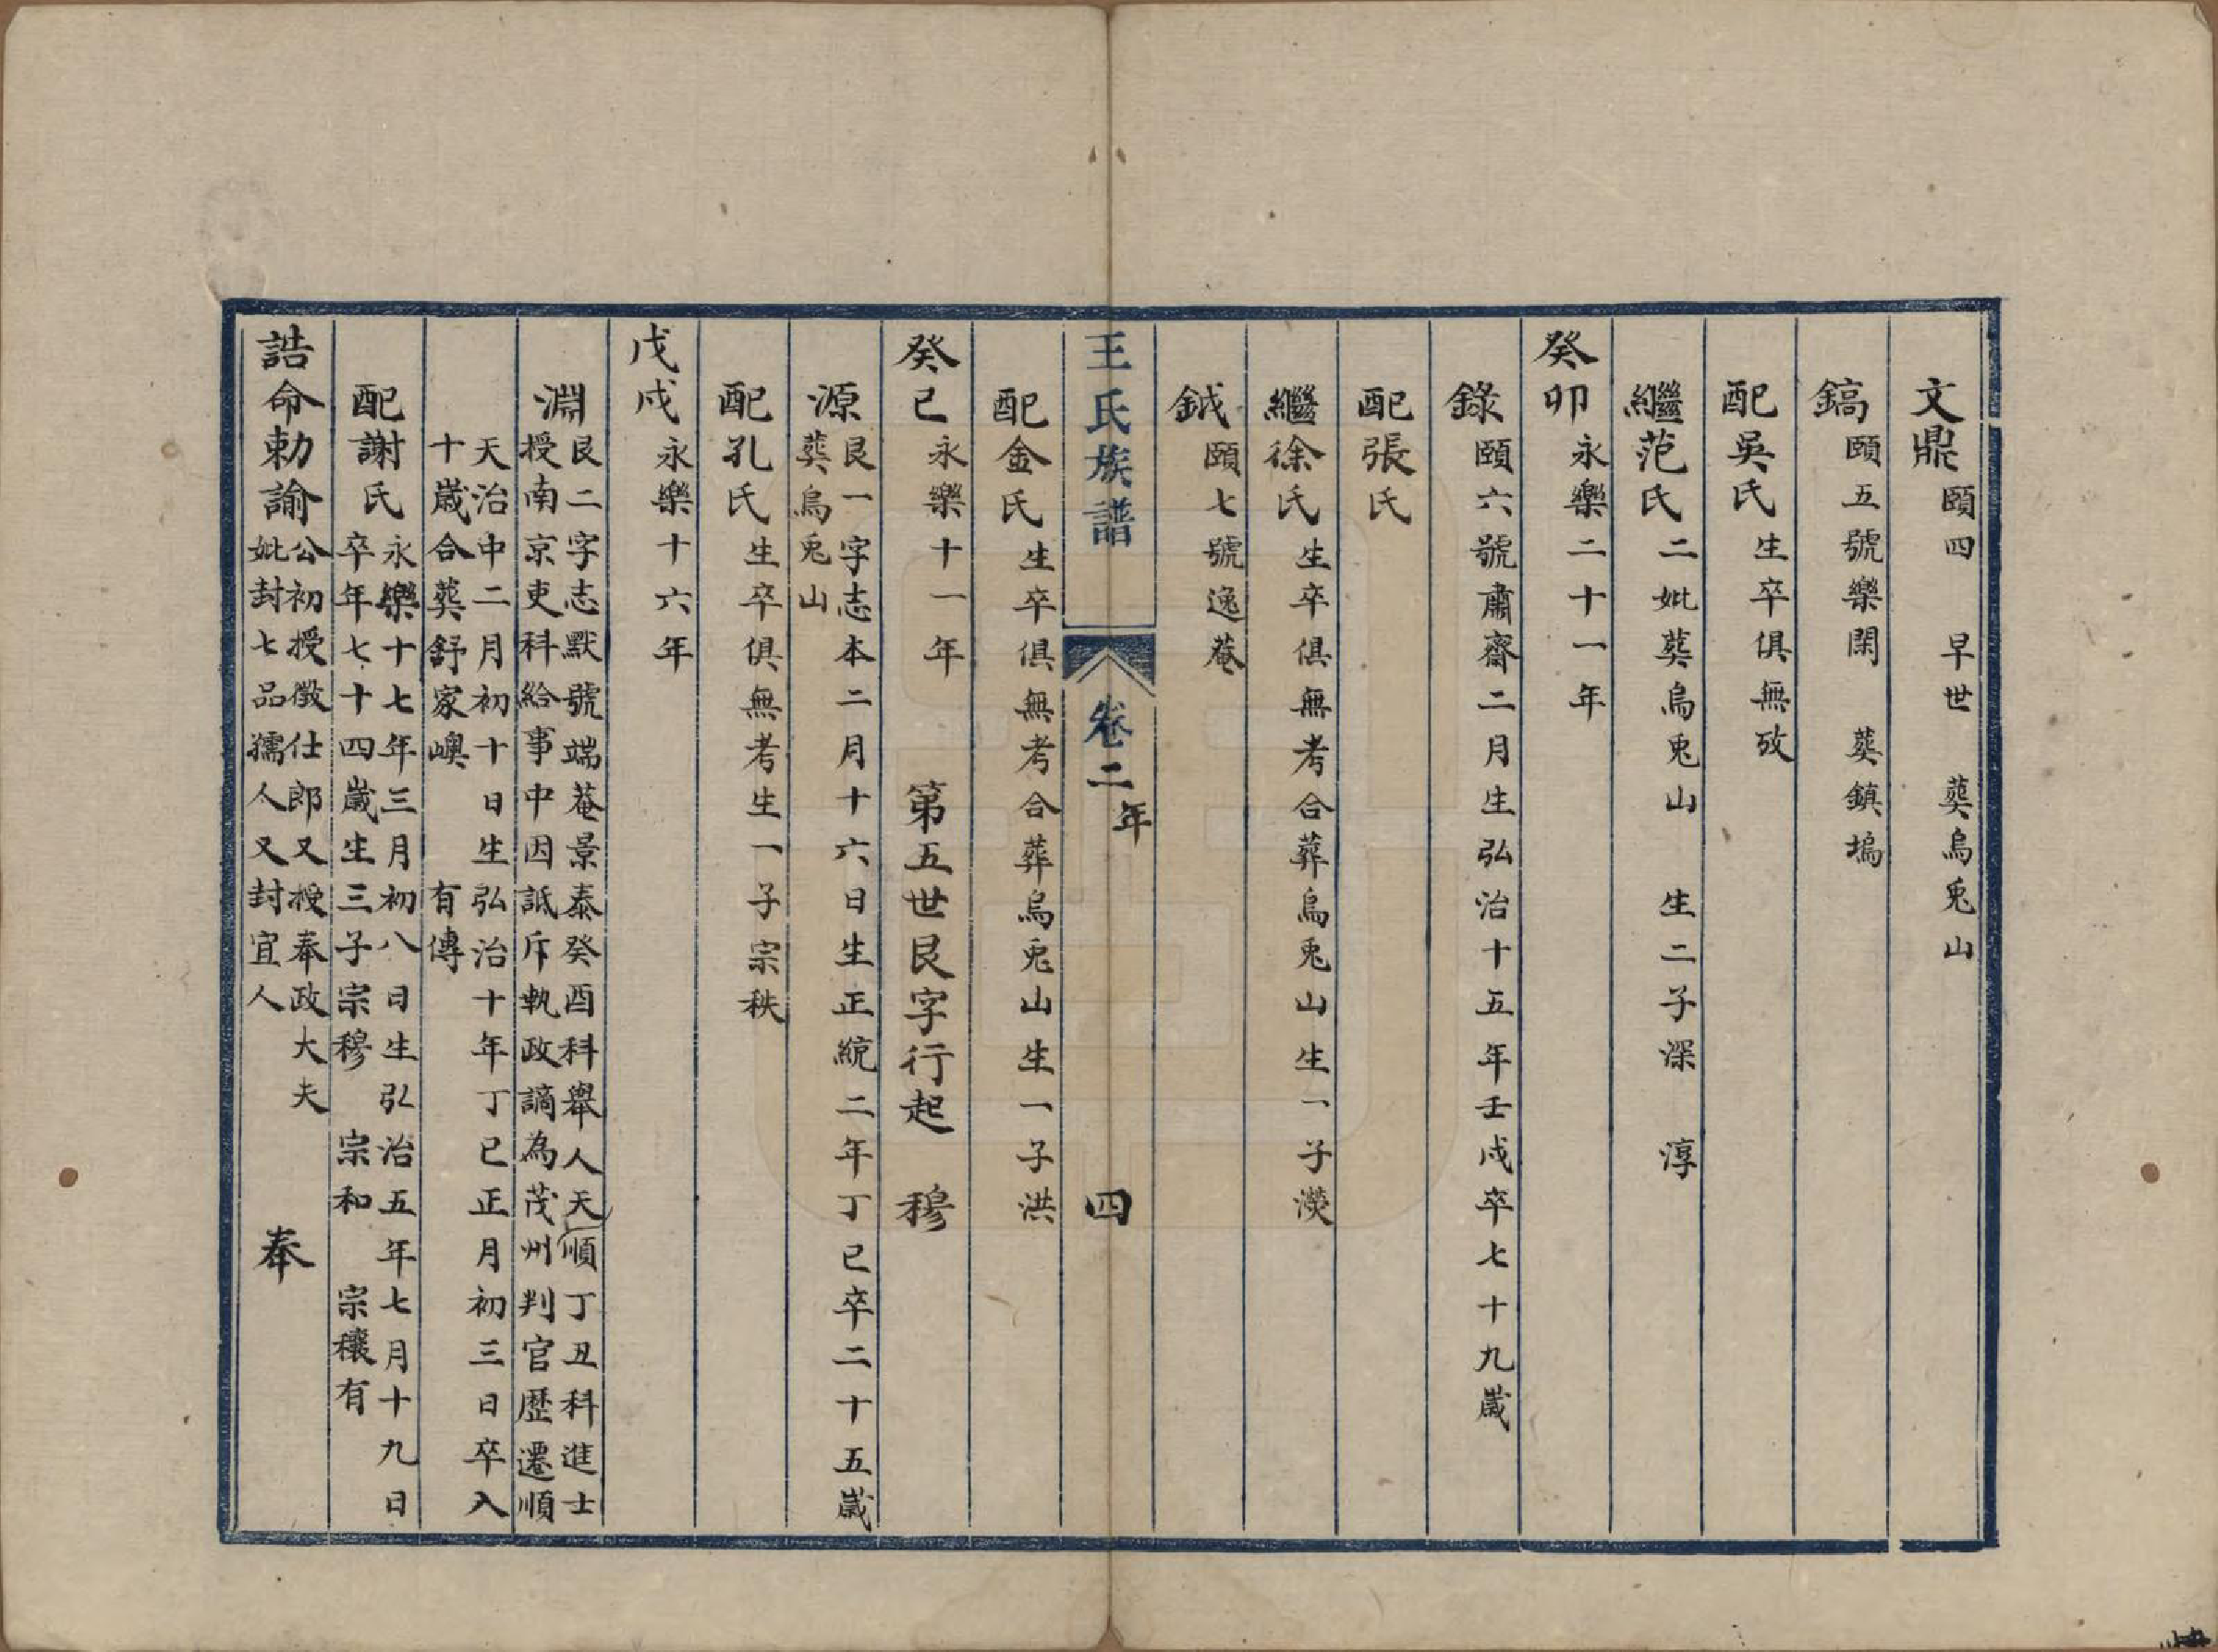 文鼎頤四　早世　葬烏兎山
鎬頤五號樂閑　葬鎮塢
配吳氏生卒俱無攷
繼范氏二妣葬烏兎山　生二子深　淳
癸卯永樂二十一年
錄頤六號肅齋二月生弘治十五年壬戌卒七十九歲
配張氏
繼徐氏生卒俱無考合葬烏兎山生一子濙
鉞頤七號逸菴
王氏族譜　卷二　年　四
配金氏生卒俱無考合葬烏兎山生一子洪
癸巳永樂十一年　第五世艮字行起　穆
源艮一字志本二月十六日生正統二年丁巳卒二十五歲
葬烏兎山
配孔氏生卒俱無考生一子宗秩
戊戌永樂十六年
淵艮二字志默號端菴景泰癸酉科舉人天順丁丑科進士
授南京吏科給事中因詆斥執政謫為茂州判官歷遷順
天治中二月初十日生弘治十年丁巳正月初三日卒入
十歲合葬舒家嶴　有傳
配謝氏永樂十七年三月初八日生弘治五年七月十九日
卒年七十四歲生三子宗穆　宗和　宗穰有
誥命勅諭公初授徵仕郎又授奉政大夫
妣封七品孺人又封宜人　奉